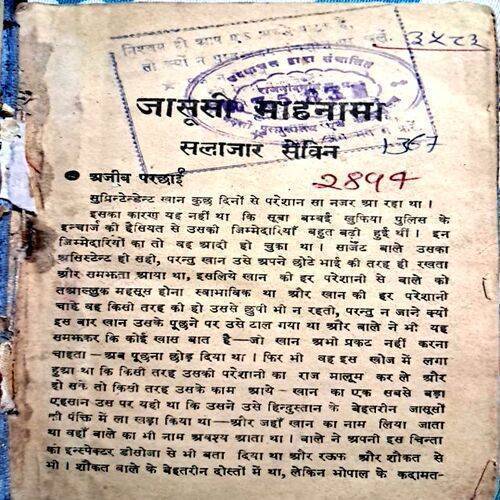 ३५८३
जासूसी माहनामा
सलाजार सेविन १३६७
● अजीब परछाईं
2894
सुप्रिन्टेन्डेन्ट खान कुछ दिनों से परेशान सा नजर आ रहा था।
इसका कारण यह नहीं था कि सूबा बम्बई खुफिया पुलिस के
इन्चार्ज की हैसियत से उसकी जिम्मेदारियाँ बहुत बढ़ी हुई थीं। इन
जिम्मेदारियों का तो वह आदी हो चुका था। सार्जेंट बाले उसका
असिस्टेन्ट ही सही, परन्तु खान उसे अपने छोटे भाई की तरह ही रखता
और समझता आया था, इसलिये खान की हर परेशानी से बाले को
तअल्लुक महसूस होना स्वाभाविक था और खान की हर परेशानी
चाहे वह किसी तरह की हो उससे छुपी भी न रहती, परन्तु न जाने क्यों
इस बार खान उसके पूछने पर उसे टाल गया था और बाले ने भी यह
समझकर कि कोई खास बात है—जो खान अभी प्रकट नहीं करना
चाहता—अब पूछना छोड़ दिया था। फिर भी वह इस खोज में लगा
हुआ था कि किसी तरह उसकी परेशानी का राज मालूम कर ले और
हो सके तो किसी तरह उसके काम आये—खान का एक सबसे बड़ा
एहसान उस पर यही था कि उसने उसे हिन्दुस्तान के बेहतरीन जासूसों
की पंक्ति में ला खड़ा किया था—और जहाँ खान का नाम लिया जाता
था वहाँ बाले का भी नाम अवश्य आता था। बाले ने अपनी इस चिन्ता
को इन्स्पेक्टर डीसोजा से भी बता दिया था और रऊफ और शौकत से
भी। शौकत बाले के बेहतरीन दोस्तों में था, लेकिन भोपाल के कदामत-